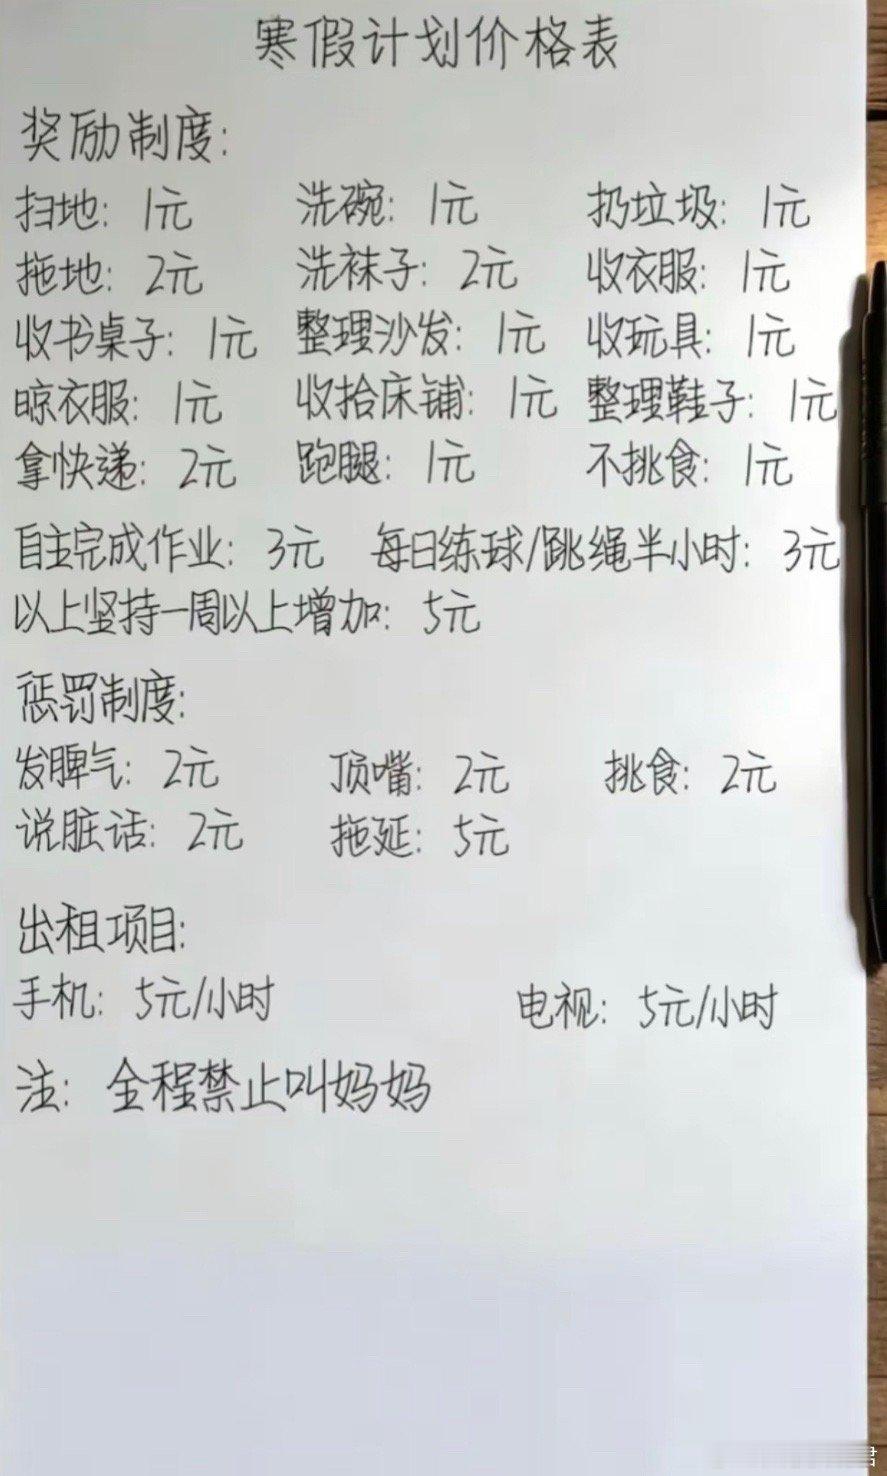 寒假计划价格表
奖励制度:
扫地: 1元 洗碗: 1元 扔垃圾: 1元
拖地: 2元 洗袜子: 2元 收衣服: 1元
收书桌子: 1元 整理沙发: 1元 收玩具: 1元
晾衣服: 1元 收拾床铺: 1元 整理鞋子: 1元
拿快递: 2元 跑腿: 1元 不挑食: 1元
自主完成作业: 3元 每日练球/跳绳半小时: 3元
以上坚持一周以上增加: 5元
惩罚制度:
发脾气: 2元 顶嘴: 2元 挑食: 2元
说脏话: 2元 拖延: 5元
出租项目:
手机: 5元/小时 电视: 5元/小时
注: 全程禁止叫妈妈
君